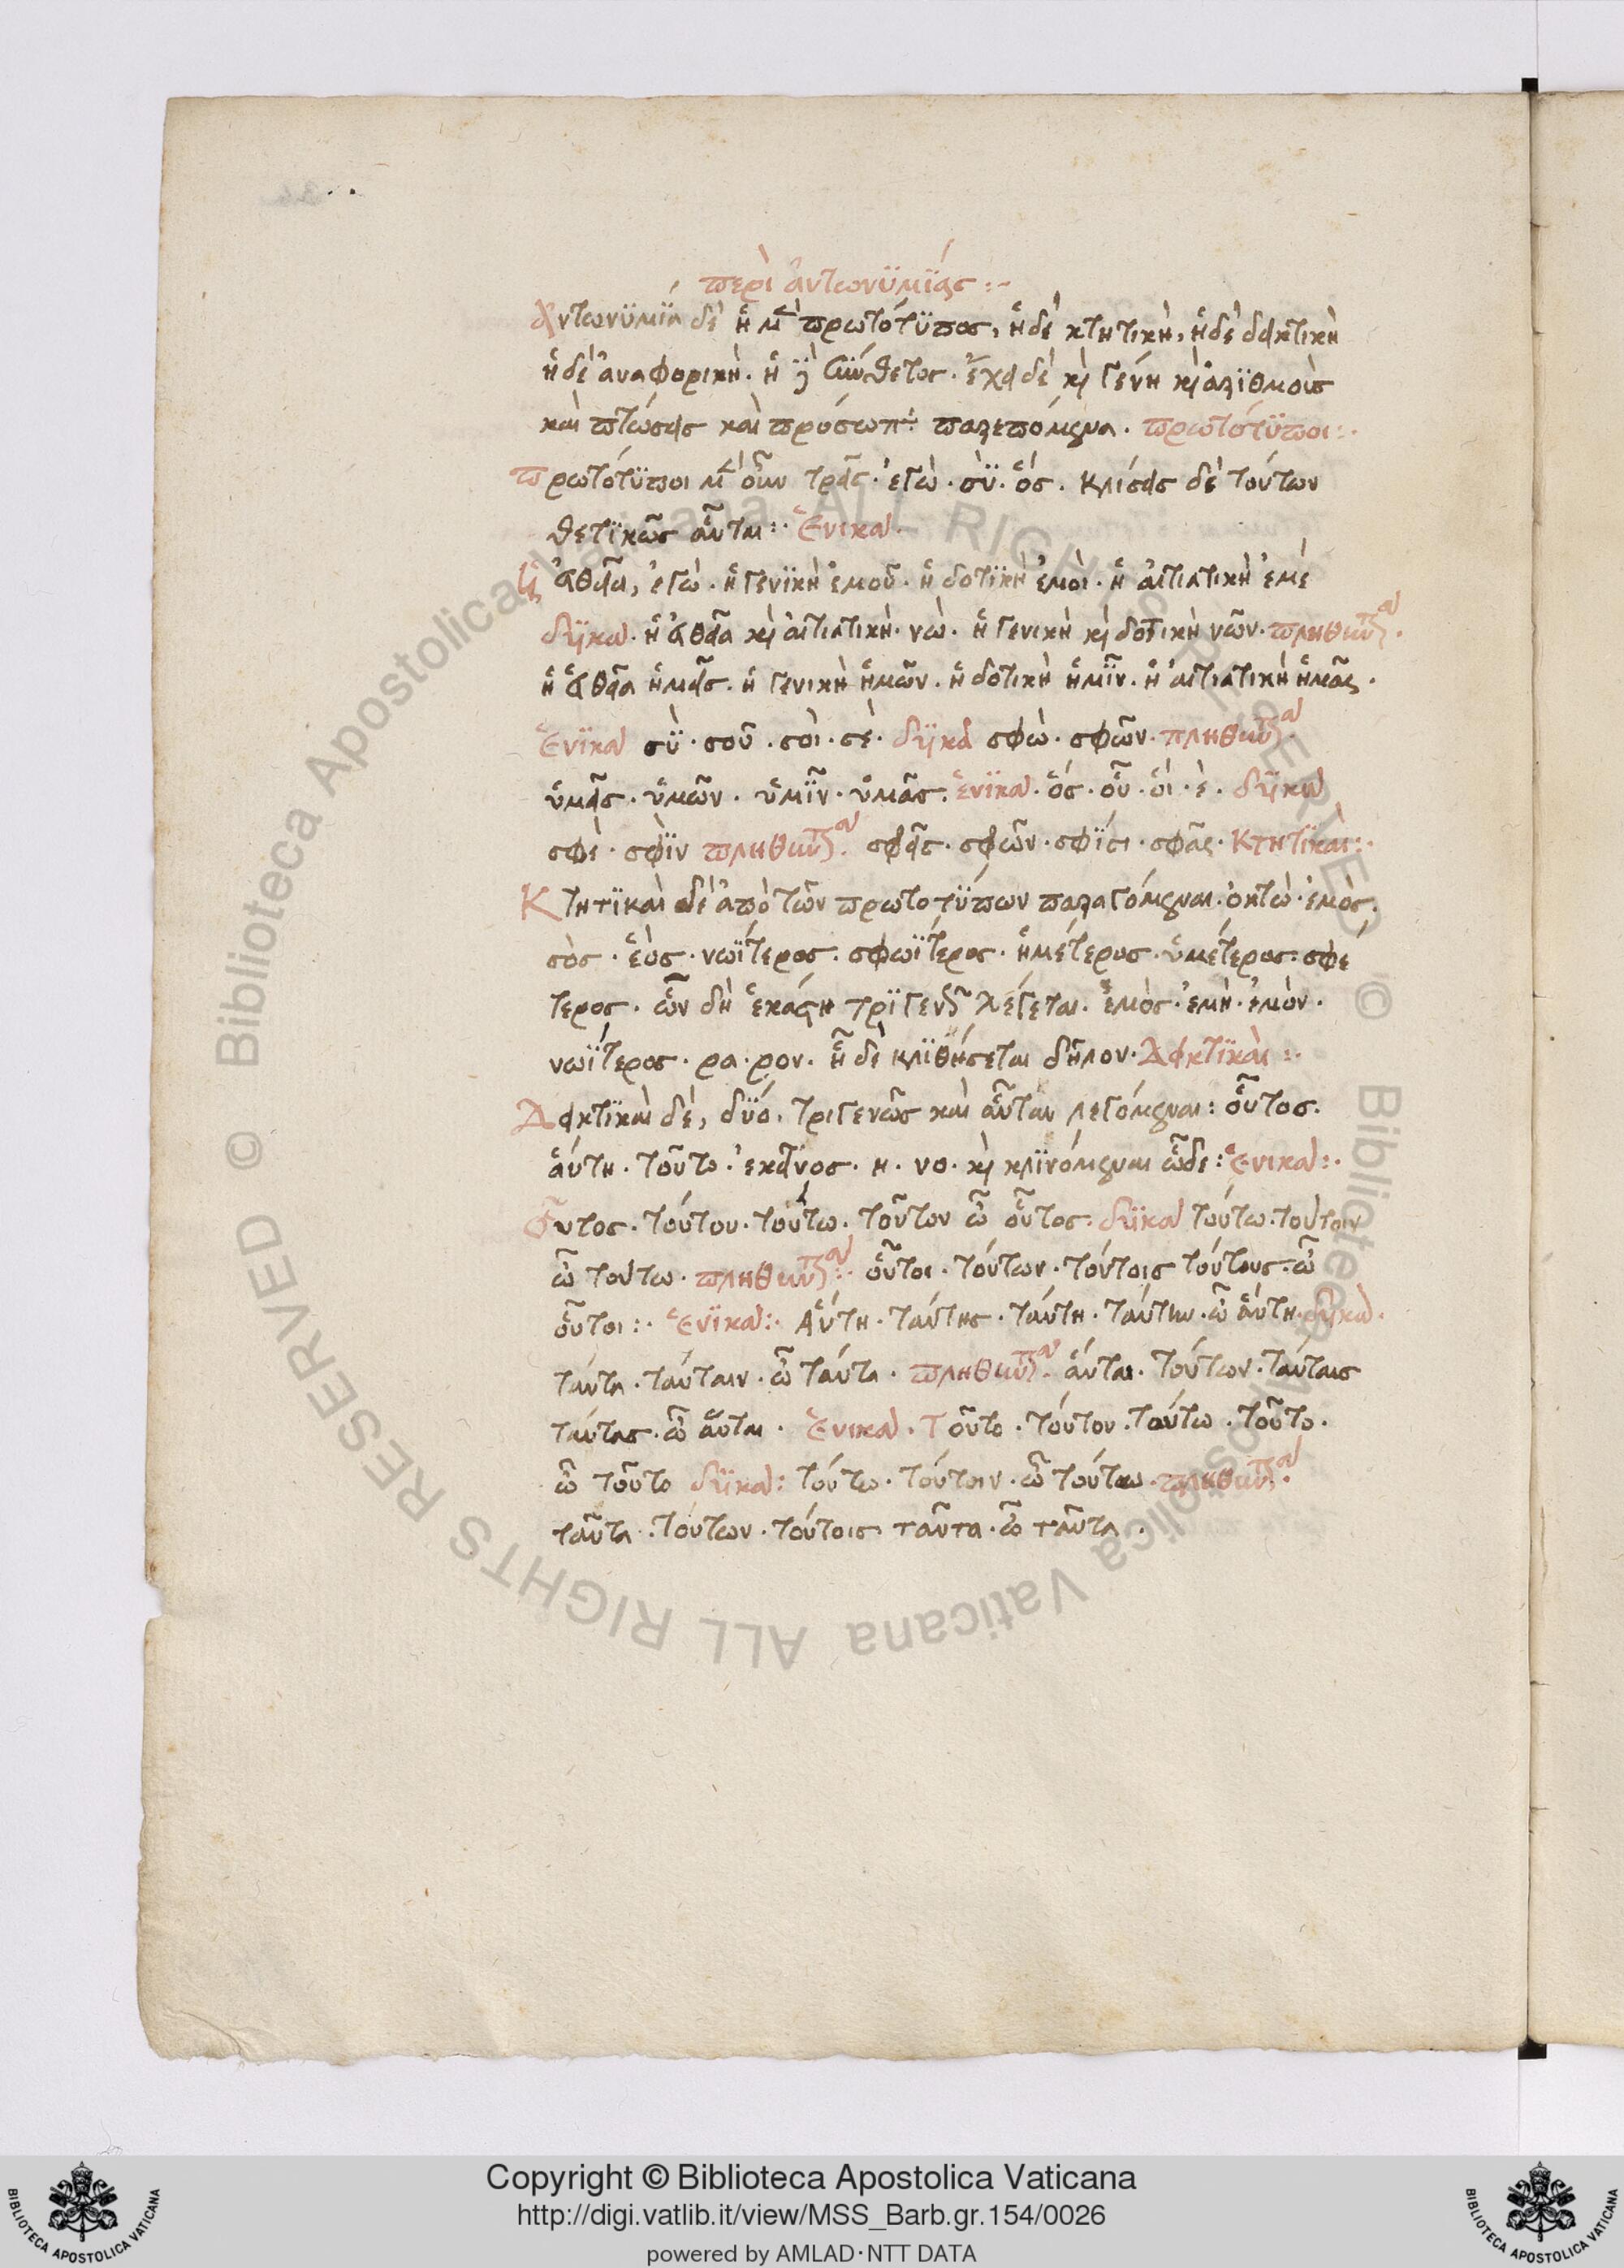 περὶ ἀντωνϋμίας :-
Ἀντωνϋμία δὲ ἡ μὲν πρωτότϋπος, ἡ δὲ κτητικὴ, ἡ δὲ δεικτικὴ
ἡ δὲ ἀναφορικὴ. ἡ δὲ σύνθετος. ἔχει δὲ καὶ γένη καὶ ἀρϊθμοὺς
καὶ πτώσεις καὶ πρόσωπα παρεπόμενα. πρωτότϋποι :·
πρωτότϋποι μὲν οὖν τρεῖς· ἐγὼ· σὺ· ὅς. κλίσεις δὲ τούτων
θετϊκῶς αὗται :· Ἑνικὰ.
Ἡ εὐθεῖα, ἐγὼ· ἡ γενϊκὴ ἐμοῦ· ἡ δοτϊκὴ ἐμοὶ· ἡ αἰτιατικὴ ἐμέ
δυϊκὰ· ἡ εὐθεῖα καὶ αἰτιατικὴ· νὼ· ἡ γενικὴ καὶ δοτικὴ νῶν· πληθυντικὰ.
ἡ εὐθεῖα ἡμεῖς. ἡ γενικὴ ἡμῶν. ἡ δοτικὴ ἡμῖν. ἡ αἰτιατικὴ ἡμᾶς.
Ἑνϊκὰ σὺ· σοῦ· σοὶ· σὲ· δυϊκὰ σφὼ· σφῶν· πληθυντικὰ.
ὑμεῖς· ὑμῶν· ὑμῖν· ὑμᾶς. ἑνϊκὰ· ὅς· οὗ· οἱ· ἑ. δυϊκὰ
σφὲ· σφὶν πληθυντικὰ. σφεῖς· σφῶν· σφίσι· σφᾶς· κτητϊκαὶ :·
Κτητϊκαὶ δὲ ἀπὸ τῶν πρωτοτύπων παραγόμεναι· ὀκτὼ· ἐμὸς.
σὸς· ἑὸς· νωΐτερος· σφωΐτερος· ἡμέτερος· ὑμέτερος· σφέ
τερος. ὧν δὴ ἑκάστη τρϊγενῶς λέγεται. ἐμὸς· ἐμὴ· ἐμὸν.
νωΐτερος· ρα· ρον. ᾗ δὲ κλϊθήσεται δῆλον. Δεικτϊκαὶ :·
Δεικτϊκαὶ δὲ, δϋό. τριγενῶς καὶ αὗται λεγόμεναι : οὗτος.
αὕτη· τοῦτο· ἐκεῖνος· η· νο· καὶ κλϊνόμεναι ὧδε : Ἑνικὰ :·
Οὗτος· τούτου· τούτω· τοῦτον ὦ οὗτος· δυϊκὰ τούτω· τούτοιν
ὦ τούτω· πληθυντικὰ :· οὗτοι· τούτων· τούτοις τούτους· ὦ
οὗτοι :· Ἑνϊκὰ :· Αὕτη· ταύτης· ταύτη· ταύτην· ὦ αὕτη· δυϊκὰ.
ταύτα· ταύταιν· ὦ ταύτα· πληθυντικὰ. αὗται· τούτων· ταύταις
ταύτας· ὦ αὗται· Ἑνικὰ· Τοῦτο· τούτου· τούτω· τοῦτο.
ὦ τοῦτο δυϊκὰ : τούτω· τούτοιν· ὦ τούτω· πληθυντικὰ.
ταῦτα· τούτων· τούτοις· ταῦτα· ὦ ταῦτα.
© Biblioteca Apostolica Vaticana ALL RIGHTS RESERVED © Biblioteca Apostolica Vaticana ALL RIGHTS RESERVED
Copyright © Biblioteca Apostolica Vaticana
http://digi.vatlib.it/view/MSS_Barb.gr.154/0026
powered by AMLAD·NTT DATA
BIBLIOTECA APOSTOLICA VATICANA
BIBLIOTECA APOSTOLICA VATICANA